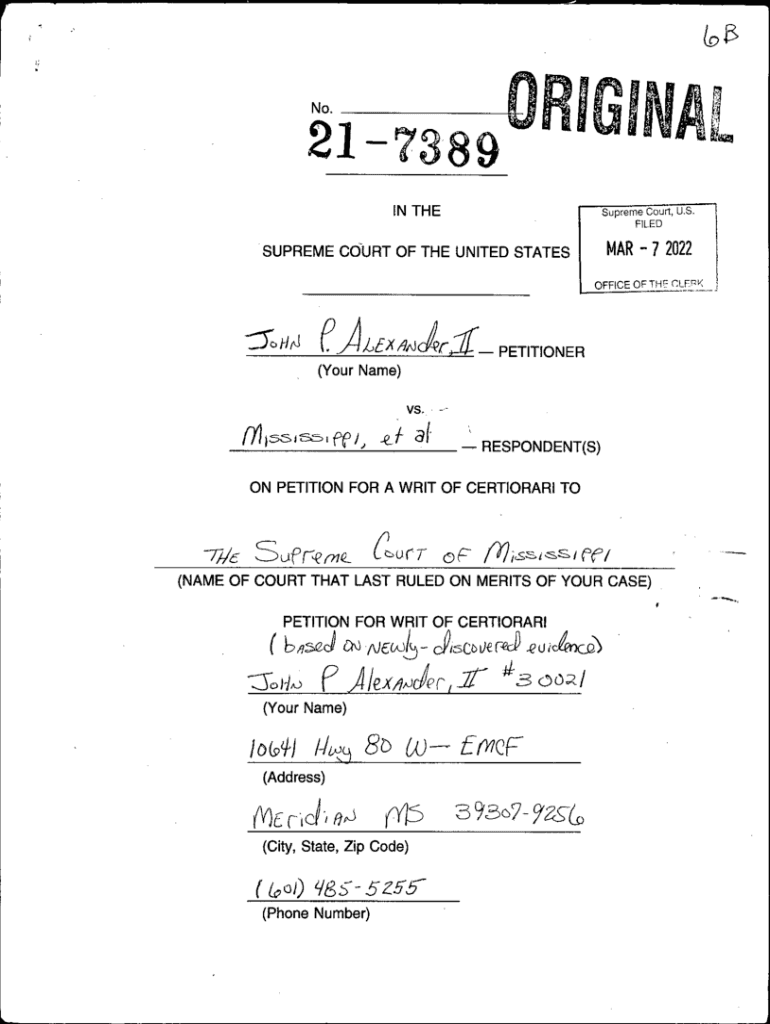 6B
ORIGINAL
No.
21-7389
IN THE
SUPREME COURT OF THE UNITED STATES
Supreme Court, U.S.
FILED
MAR - 7 2022
OFFICE OF THE CLERK
John P. Alexander, II — PETITIONER
(Your Name)
vs.
Mississippi, et al — RESPONDENT(S)
ON PETITION FOR A WRIT OF CERTIORARI TO
The Supreme Court of Mississippi
(NAME OF COURT THAT LAST RULED ON MERITS OF YOUR CASE)
PETITION FOR WRIT OF CERTIORARI
(based on newly-discovered evidence)
John P Alexander, II #30021
(Your Name)
10641 Hwy 80 W— EMCF
(Address)
Meridian MS 39307-9256
(City, State, Zip Code)
(601) 485-5255
(Phone Number)